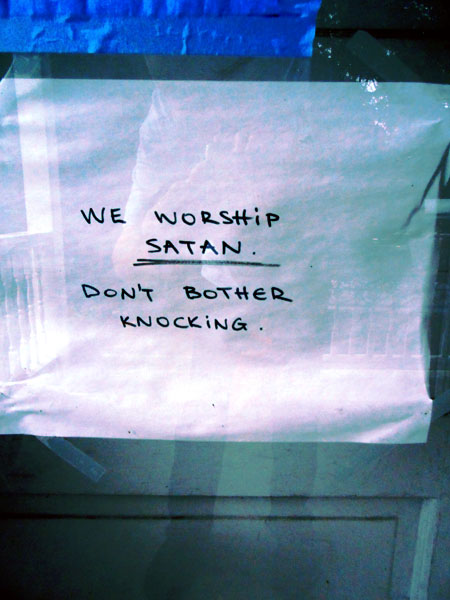 WE WORSHIP
SATAN.
DON'T BOTHER
KNOCKING.